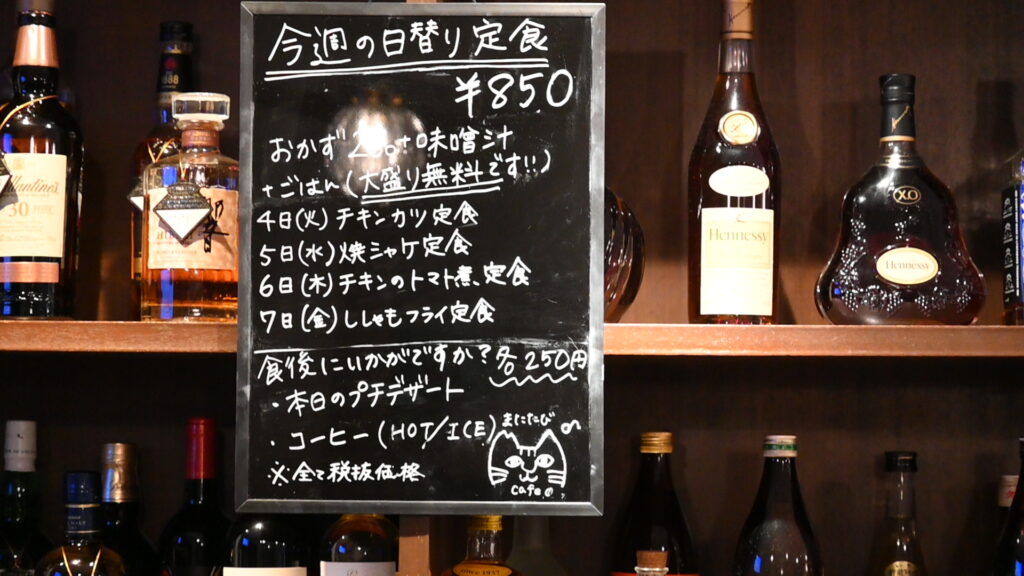 今週の日替り定食
¥850
おかず2品+味噌汁
+ごはん(大盛り無料です!!)
4日(火)チキンカツ定食
5日(水)焼シャケ定食
6日(木)チキンのトマト煮定食
7日(金)ししゃもフライ定食
食後にいかがですか?各250円
・本日のプチデザート
・コーヒー(HOT/ICE)
※全て税抜価格
またたび
cafeの
Ballantine's
30
響
Hennessy
XO
Hennessy